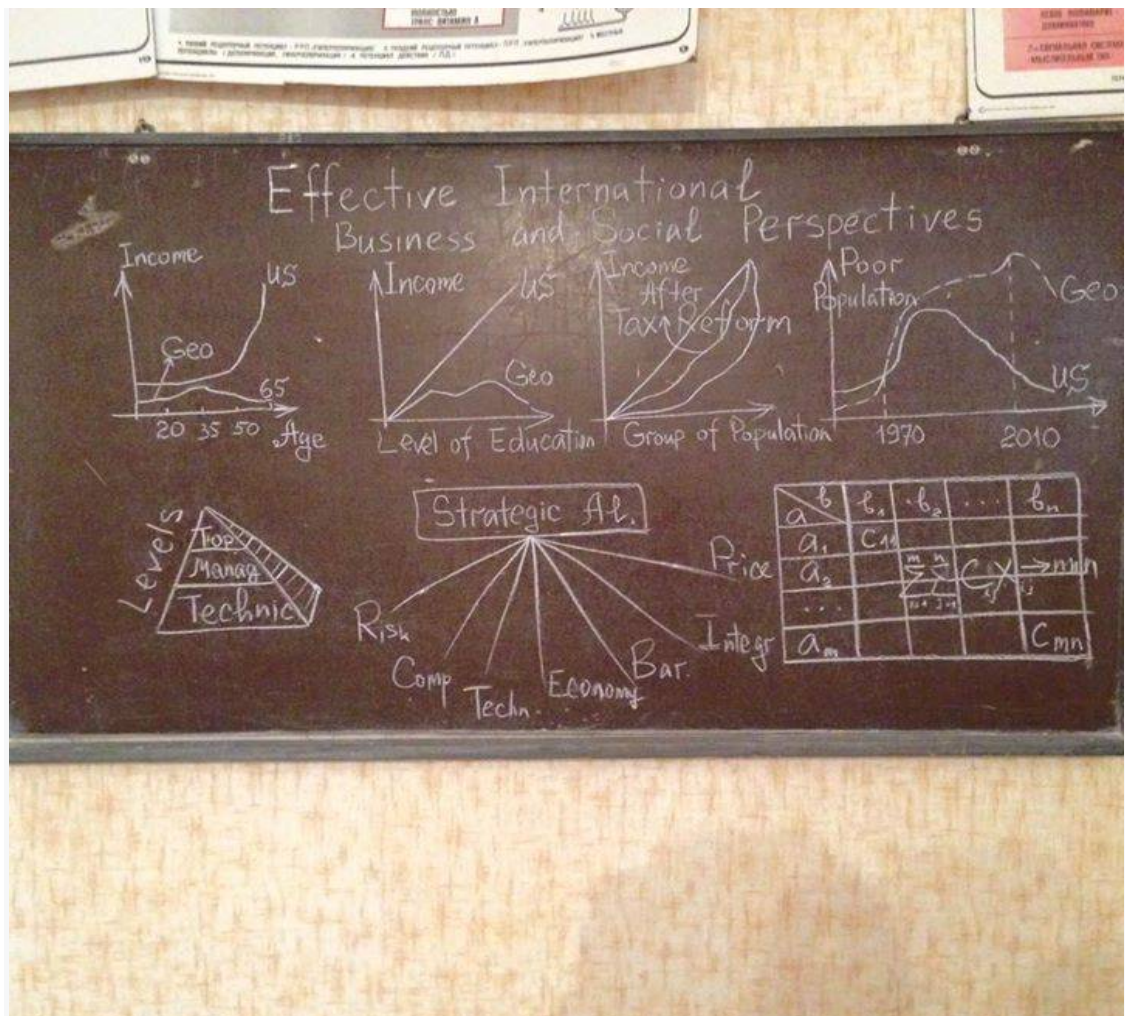 ПОЛНОСТЬЮ
ТРАНС-ВИТАМИНА А
Effective International
Business and Social Perspectives
Income
US
Geo
65
20 35 50
Age
Income
US
Geo
Level of Education
Income
After
Tax Reform
Group of Population
Poor
Population
Geo
US
1970 2010
Levels
Top
Manag
Technic
Strategic Al.
Risk
Comp
Techn.
Economy
Bar.
Integr
Price
a b b₁ b₂ ... bₙ
a₁ C₁₁
a₂
...
aₘ Cₘₙ